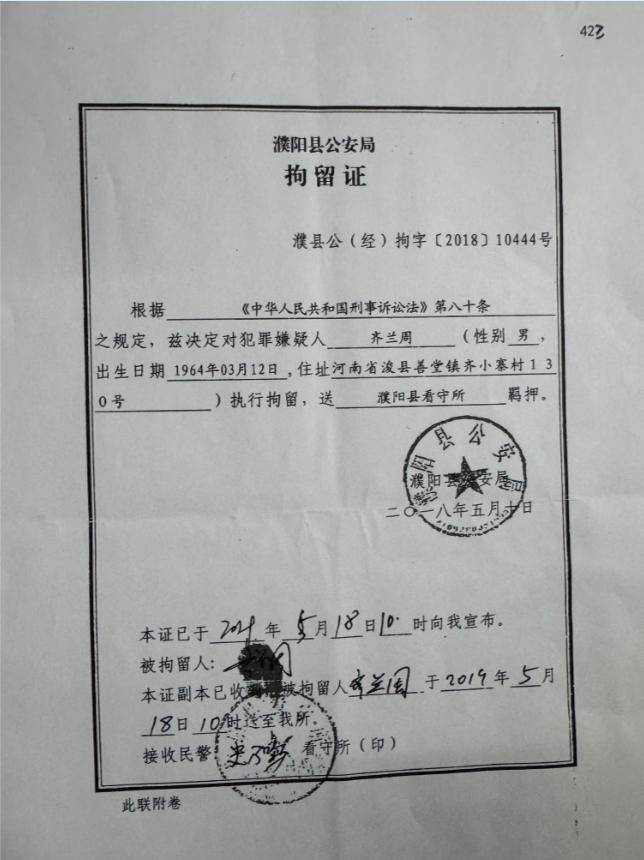 423
濮阳县公安局
拘留证
濮县公（经）拘字〔2018〕10444号
根据《中华人民共和国刑事诉讼法》第八十条
之规定，兹决定对犯罪嫌疑人 齐兰周 （性别 男，
出生日期 1964年03月12日，住址河南省浚县善堂镇齐小寨村130号
）执行拘留，送 濮阳县看守所 羁押。
濮阳县公安局
濮阳县公安局
二〇一八年五月十日
本证已于 年 5月18日10时向我宣布。
被拘留人：
本证副本已收到，被拘留人齐兰周 于2019年5月
18日10时送至我所。
接收民警 看守所（印）
此联附卷